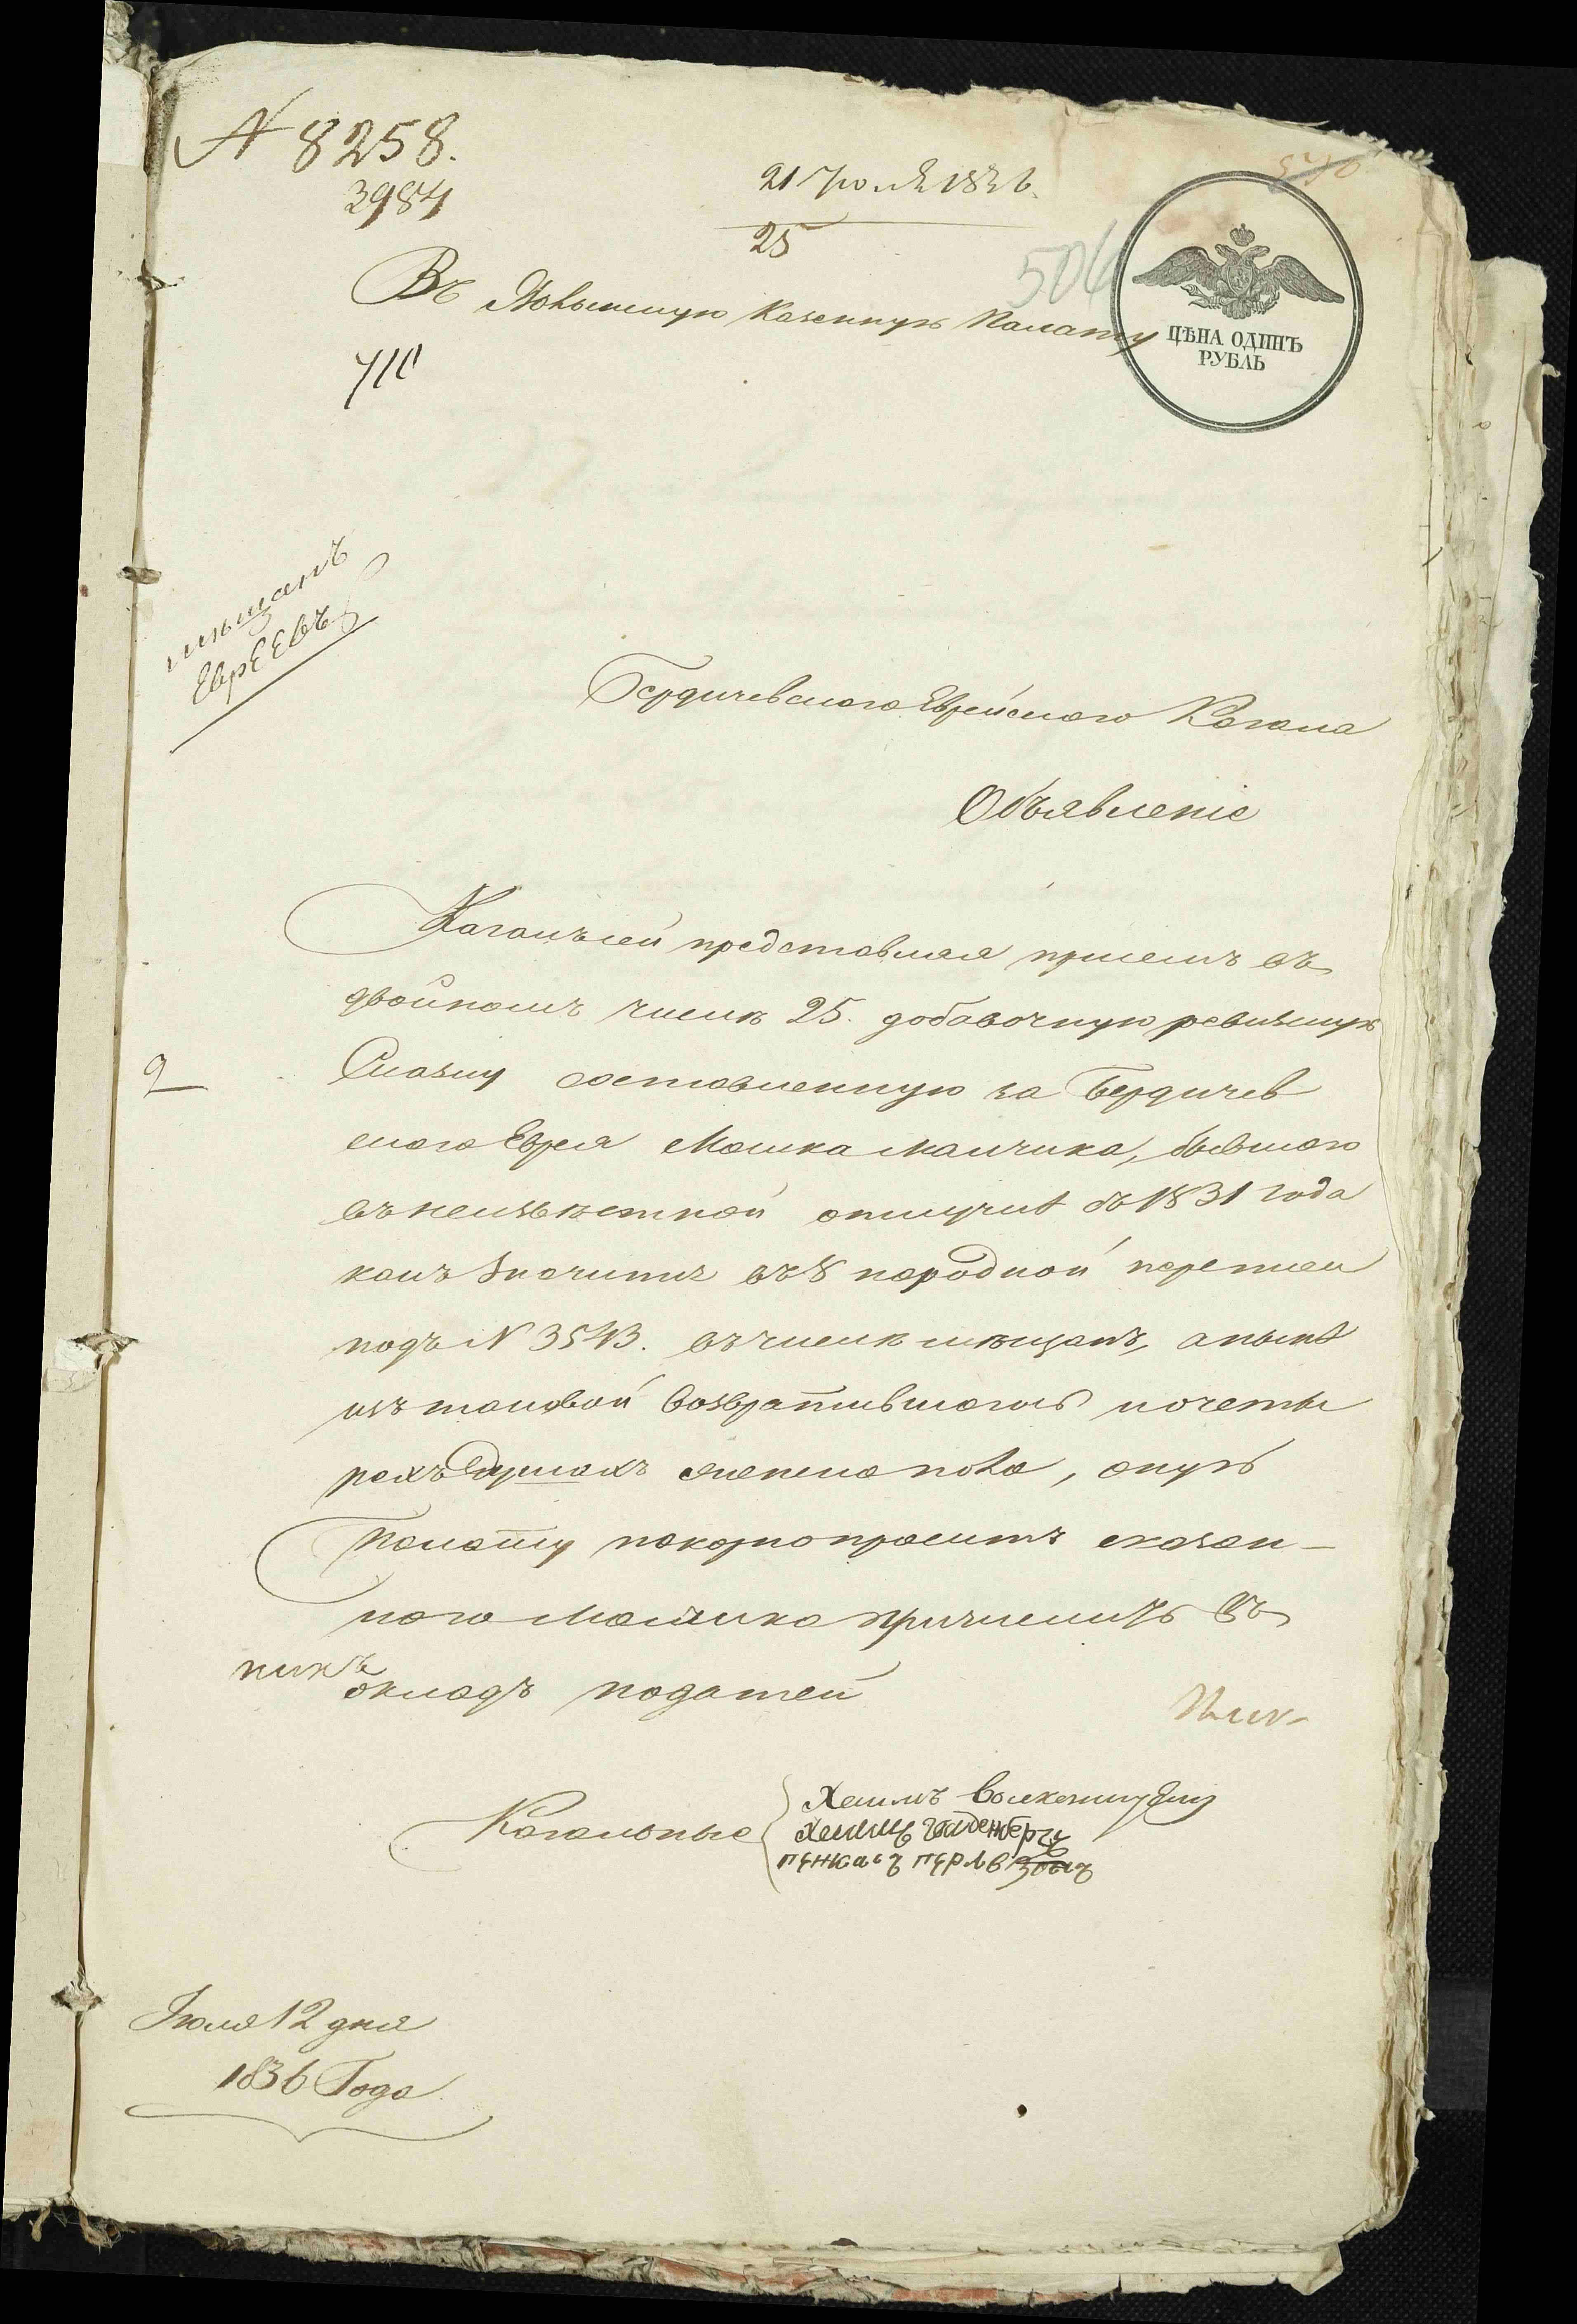 N 8258.
3984
21 Июля 1836.
25
504
Въ Волынскую Казенную Палату
ЦѢНА ОДИНЪ
РУБЛЬ
710
мѣщанъ
Евреевъ
Бердичевского Еврейского Кагала
Объявленіе
Кагалъ сей представляя присемъ въ
двойномъ числѣ 25. добавочную ревизкую
2
Сказку составленную за Бердичев
ского Еврея Мошка Манчика, бывшого
въ неизвѣстной отлучкѣ въ 1831 года
какъ значитъ въ 8 народной переписи
подъ N 3543. въ числѣ мѣщанъ, а нынѣ
изъ таковой возвратившогось и о четы
рехъ душахъ женска пола, оную
Палату покорно проситъ сказан-
ного Манчика причислить въ
окладъ податей
Кагальные
Хаимъ
Хаимъ Гольденбергъ
Июля 12 дня
1836 Года